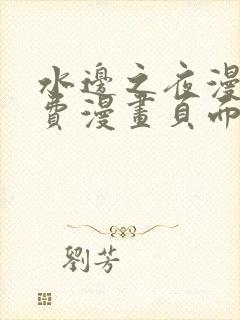 水邊之夜漫
費漫畫頁面
劉芳